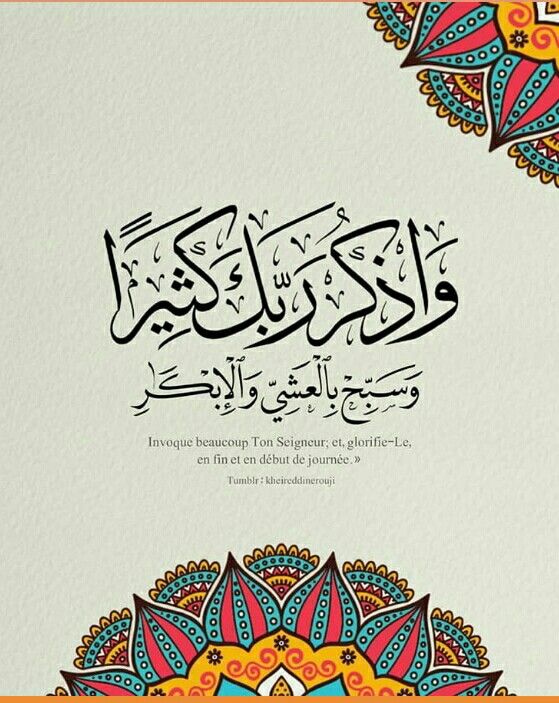 وَاذْكُر رَبَّكَ كَثِيرًا
وَسَبِّحْ بِالْعَشِيِّ وَالْإِبْكَارِ
Invoque beaucoup Ton Seigneur; et, glorifie-Le,
en fin et en début de journée.»
Tumblr : kheireddinerouji